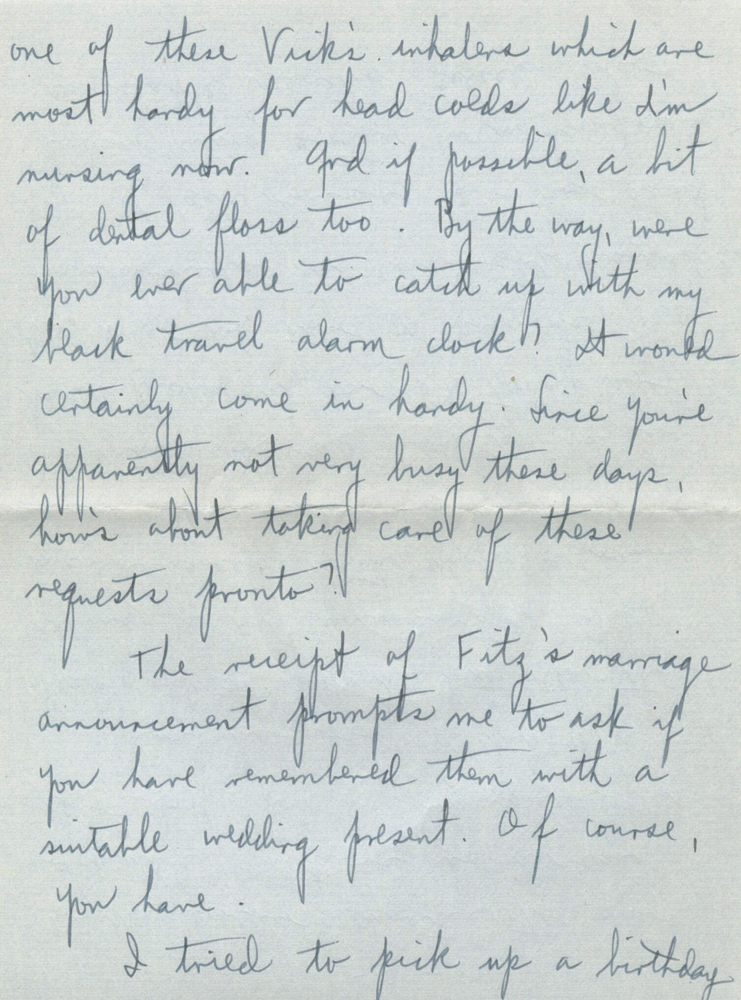 one of these Vick's inhalers which are
most handy for head colds like I'm
nursing now. And if possible, a bit
of dental floss too. By the way, were
you ever able to catch up with my
black travel alarm clock? It would
certainly come in handy. Since you're
apparently not very busy these days,
how's about taking care of these
requests pronto?
The receipt of Fitz's marriage
announcement prompts me to ask if
you have remembered them with a
suitable wedding present. Of course,
you have.
I tried to pick up a birthday